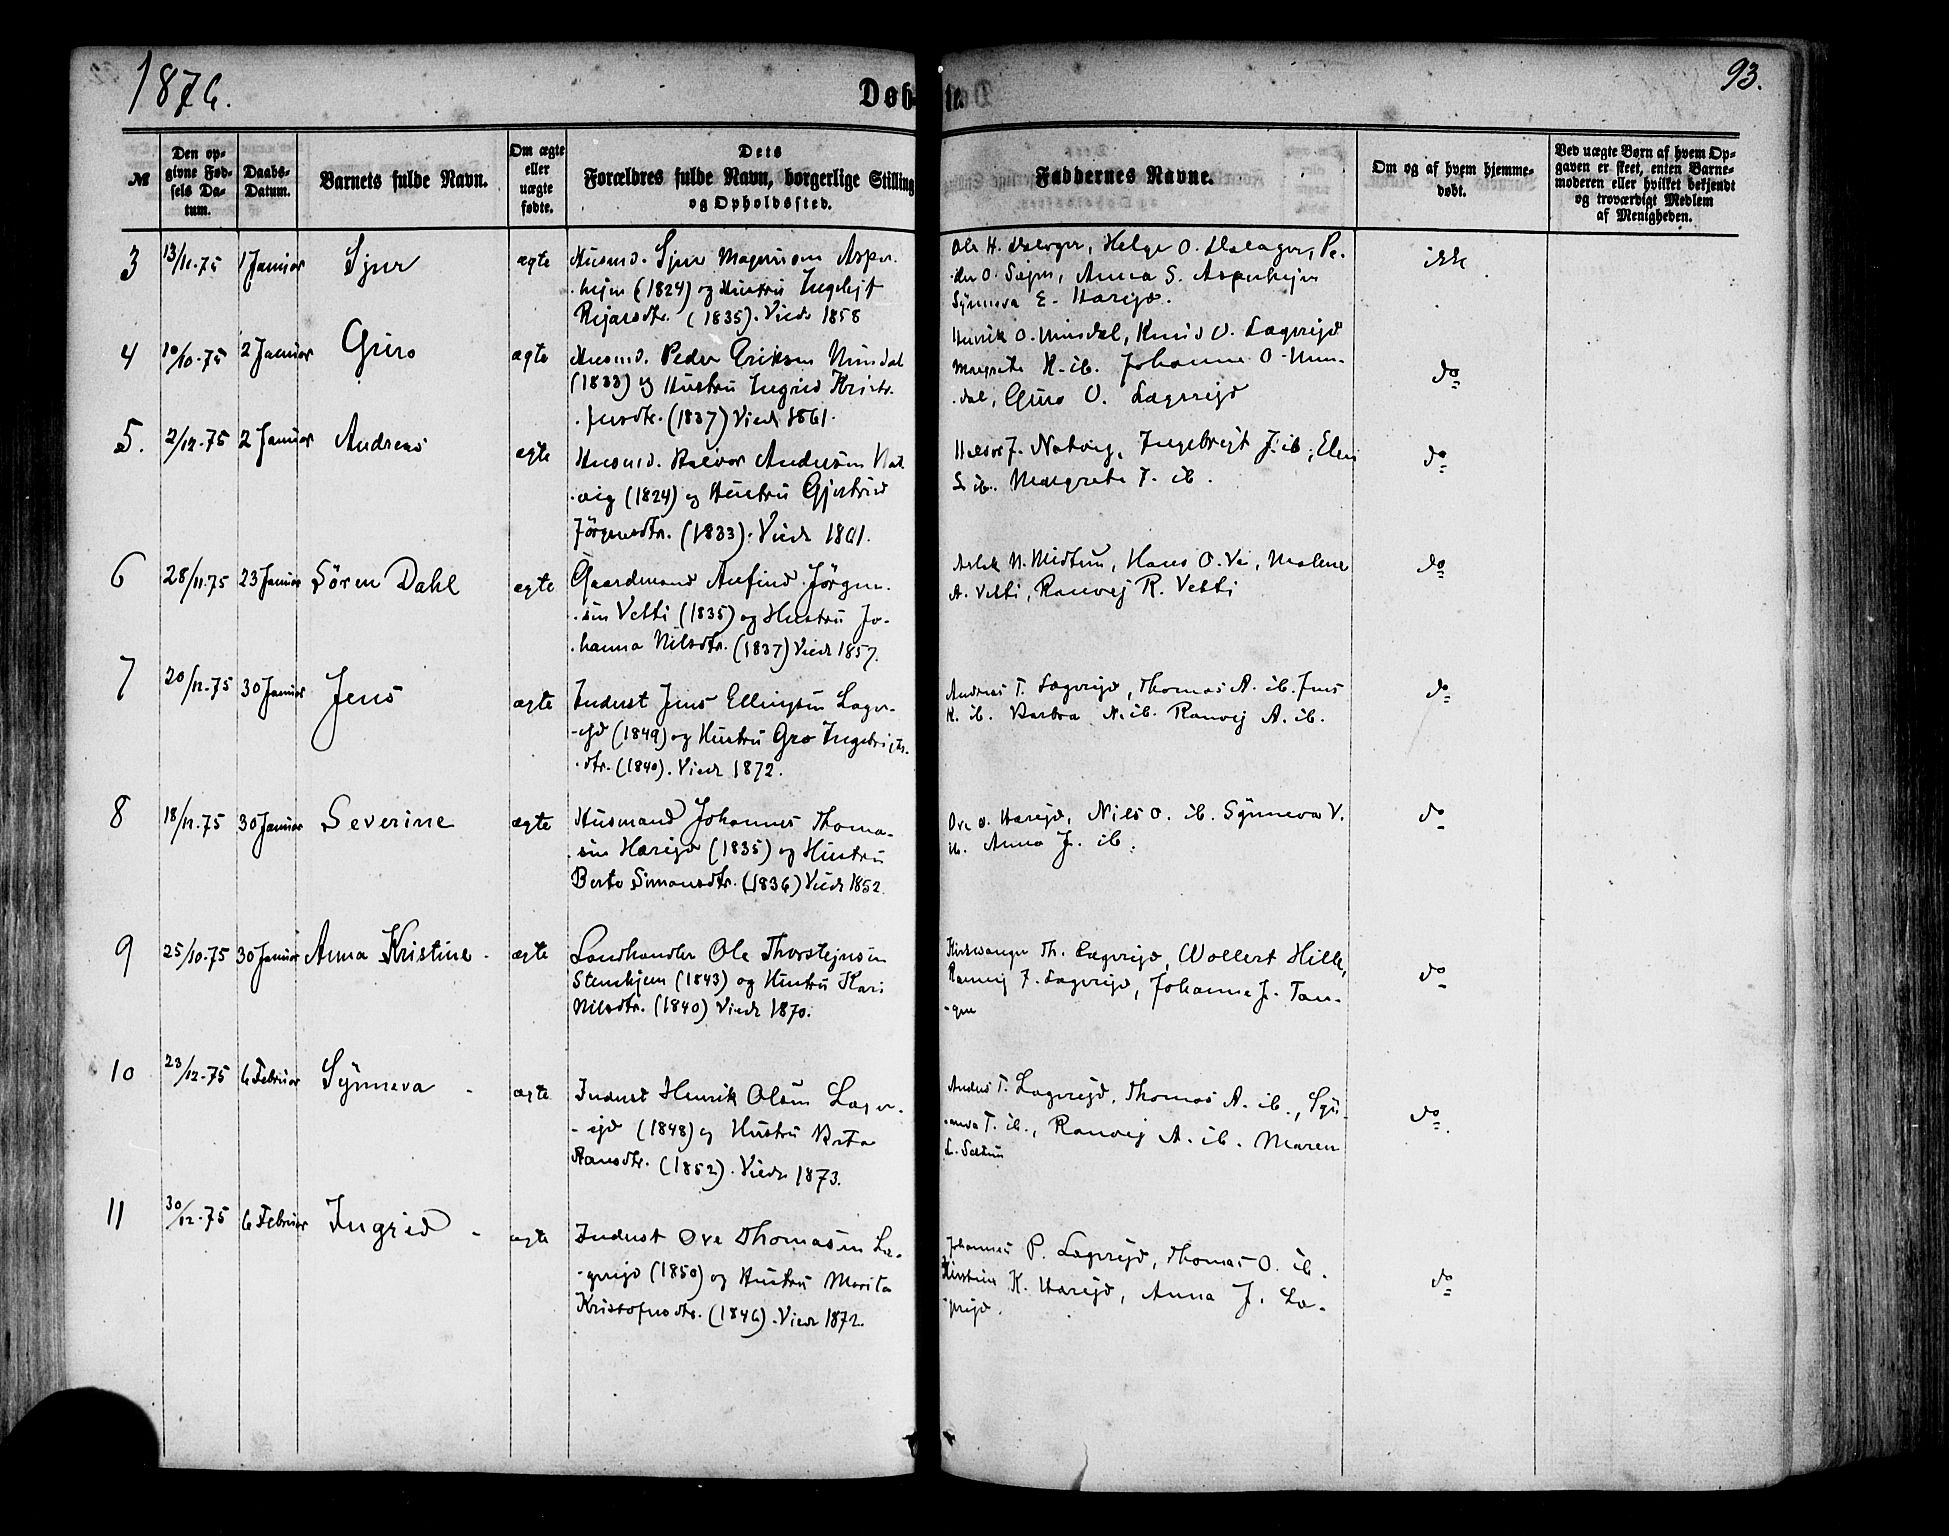 1876.
Døbte.
93.
№
Den opgivne Fødsels Datum.
Daabs-Datum.
Barnets fulde Navn.
Om ægte eller uægte fødte.
Dets Forældres fulde Navn, borgerlige Stilling og Opholdssted.
Faddernes Navne.
Om og af hvem hjemmedøbt.
Ved uægte Børn af hvem Opgaven er skeet, enten Barnemoderen eller hvilket bekjendt og troværdigt Medlem af Menigheden.
3 13/11.75 1 Januar Sjur ægte
Husmd. Sjur Magnusen Asper-
hejm (1824) og Hustru
(1835). Viede 1858
Helge O. Pe-
der O. Anna S. Asperhejm
Synneva E.
ikke
4 10/10.75 2 Januar Guro ægte
Husmd. Peder Eriksen
(1833) og Hustru Ingrid Krist-
(1837) Viede 1861.
Henrik O. Knud O. Lægrejd
Margrete K. ib. Johanne O.
dal, Guro O. Lægrejd
do
5. 2/12.75 2 Januar Andreas ægte
Husmd. Halvor Andersen Nat
vig (1824) og Hustru Gjertrud
Jørgensdtr. (1833). Viede 1861.
Natvig, Ingebrigt J. ib,
ib. Margrete J. ib.
do
6 28/11.75 23 Januar Søren Dahl ægte
Gaardmand Anfind Jørgen-
sen Vetti (1835) og Hustru Jo-
hanna Nilsdtr. (1837) Viede 1857.
N. Midtun, Hans O. Malene
A. Vetti, Ranvej R. Vetti
do
7 20/12.75 30 Januar Jens ægte
Inderst Jens Ellingsen Lægr-
ejd (1849) og Hustru Gro Ingebrigts-
dtr. (1840). Viede 1872.
Andreas T. Lægrejd, Thomas A. ib. Jens
K. ib. Barbra N. ib. Ranvej A. ib.
do
8 18/12.75 30 Januar Severine ægte
Husmand Johannes Thoma-
sen Hærejd (1835) og Hustru
Berte Simonsdtr. (1836) Viede 1852.
Ove O. Hærejd, Nils O. ib. Synneva V.
ib. Anna J. ib.
do
9 25/10.75 30 Januar Anna Kristine - ægte
Landhandler Ole Thorstejnsen
Stenhjem (1843) og Hustru Kari
Nilsdtr. (1840) Viede 1870.
Th. Lægrejd, Wollert Hille,
Ranvej J. Lægrejd, Johanne J. Tan-
gen
do
10 23/12.75 6 Februar Synneva - ægte
Inderst Henrik Olsen Lægr-
ejd (1848) og Hustru Brita
Hansdtr. (1852). Viede 1873.
Anders T. Lægrejd, Thomas A. ib., Syn-
neva T. ib., Ranvej A. ib. Maren
do.
11 30/12.75 6 Februar Ingrid - ægte
Inderst Ove Thomasen Læ-
grejd (1850) og Hustru Marita
Kristofersdtr. (1846). Viede 1872.
Johannes P. Lægrejd, Thomas O. ib.
Kirstine K. Hærejd, Anna J. Læ-
grejd.
do